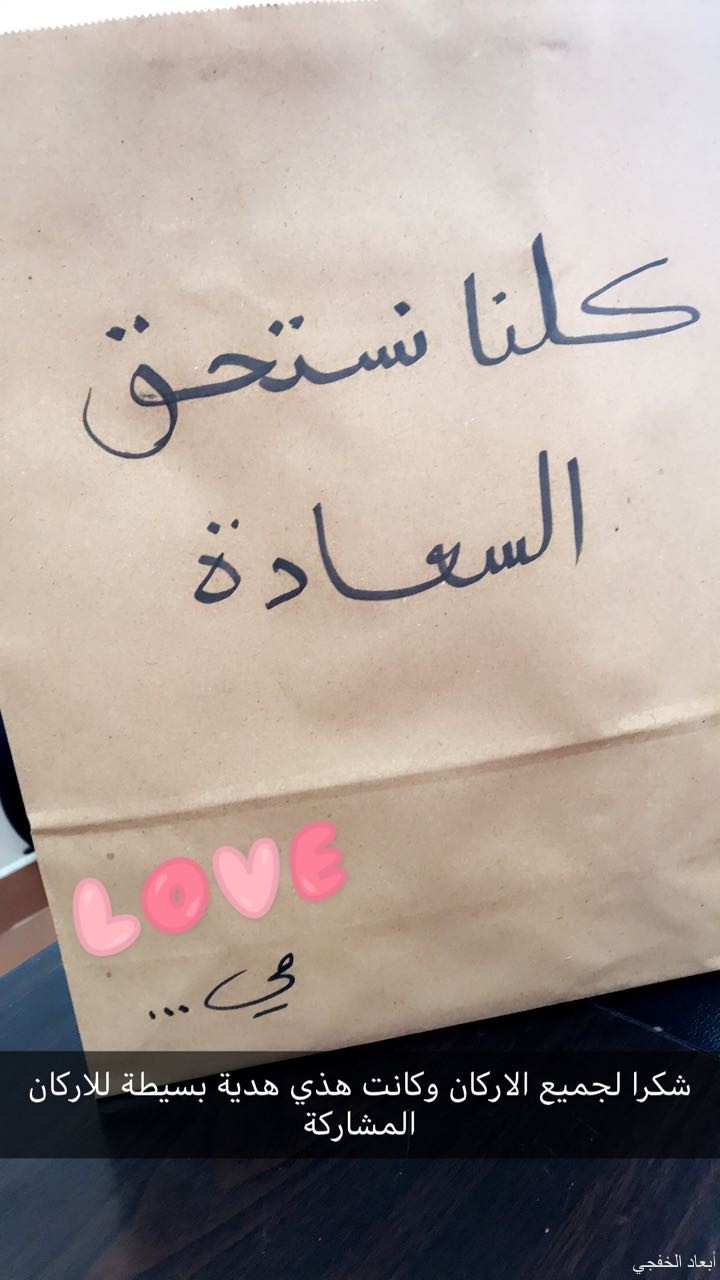 كلنا نستحق
السعادة
LOVE
مي...
شكرا لجميع الاركان وكانت هذي هدية بسيطة للاركان
المشاركة
أبعاد الخفجي